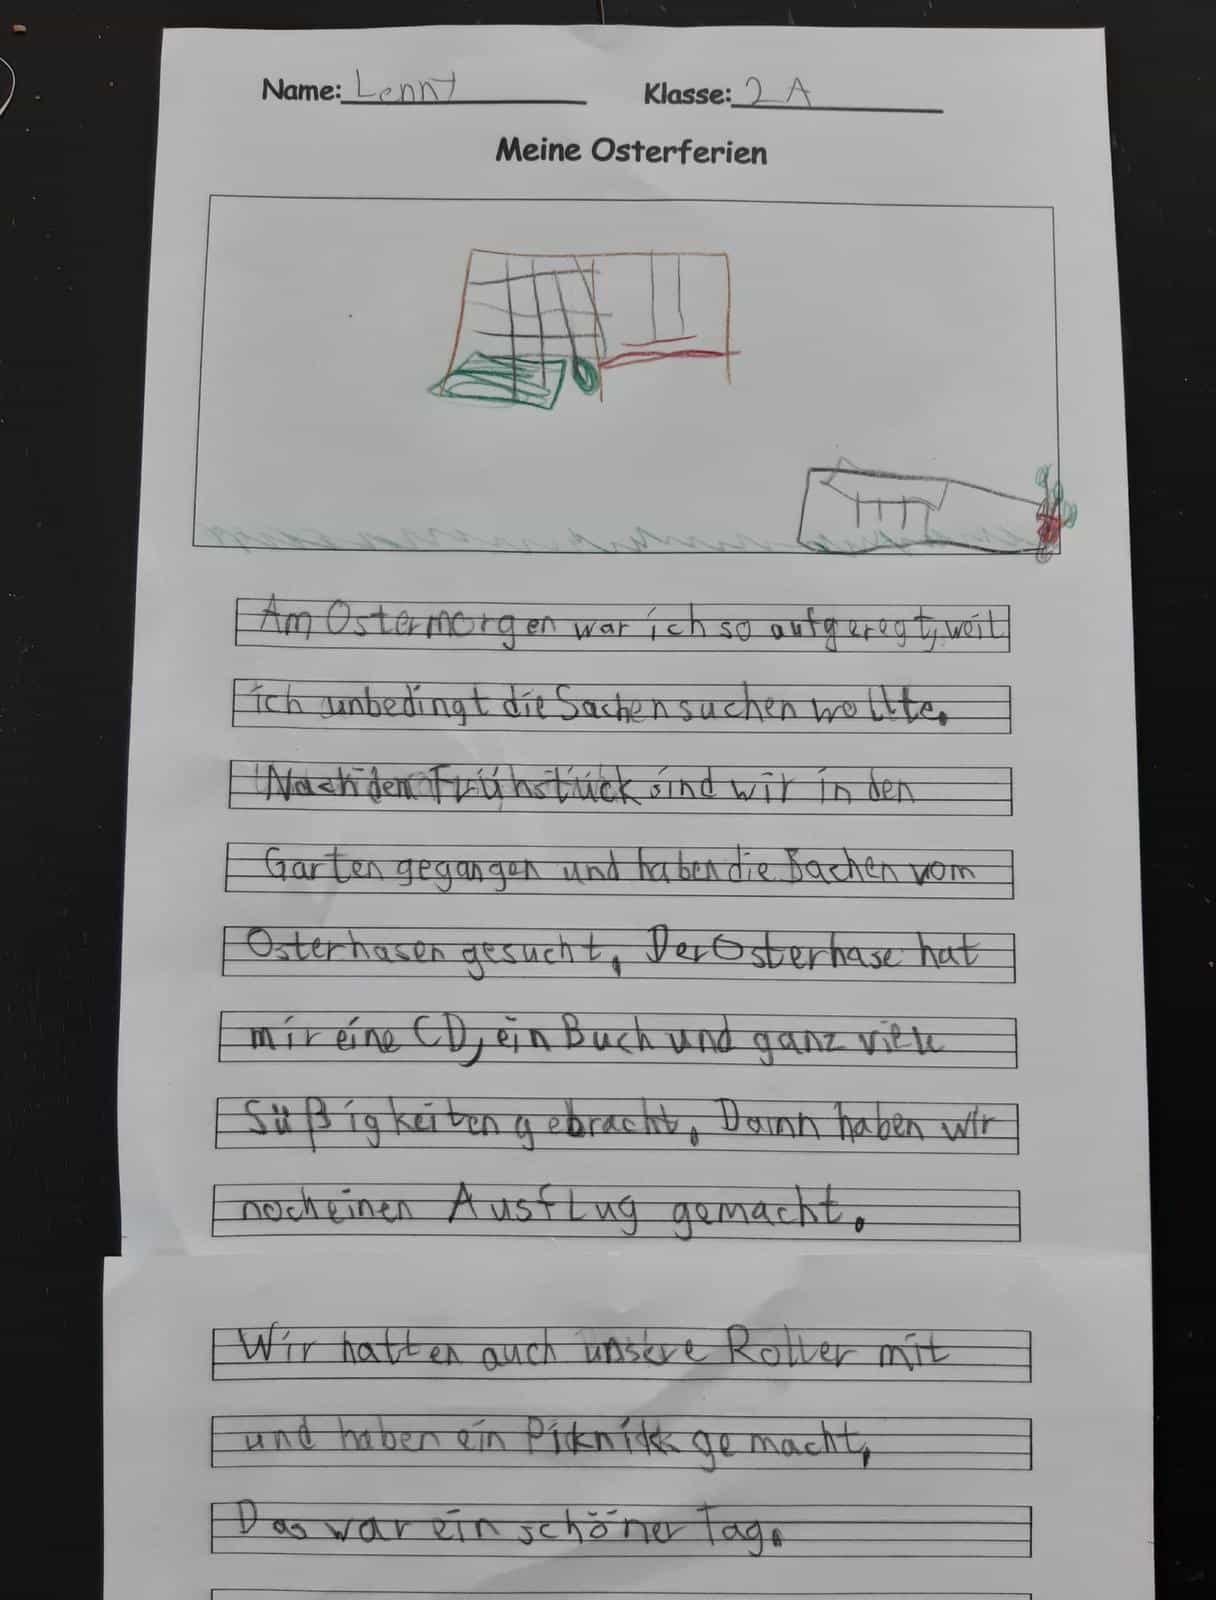 Name: Lennt
Klasse: 2 A
Meine Osterferien
Am Ostermorgen war ich so aufgeregt, weil
ich unbedingt die Sachen suchen wollte.
Nach dem Frühstück sind wir in den
Garten gegangen und haben die Sachen vom
Osterhasen gesucht. Der Osterhase hat
mir eine CD, ein Buch und ganz viele
Süßigkeiten gebracht. Dann haben wir
noch einen Ausflug gemacht.
Wir hatten auch unsere Roller mit
und haben ein Picknick gemacht.
Das war ein schöner Tag.